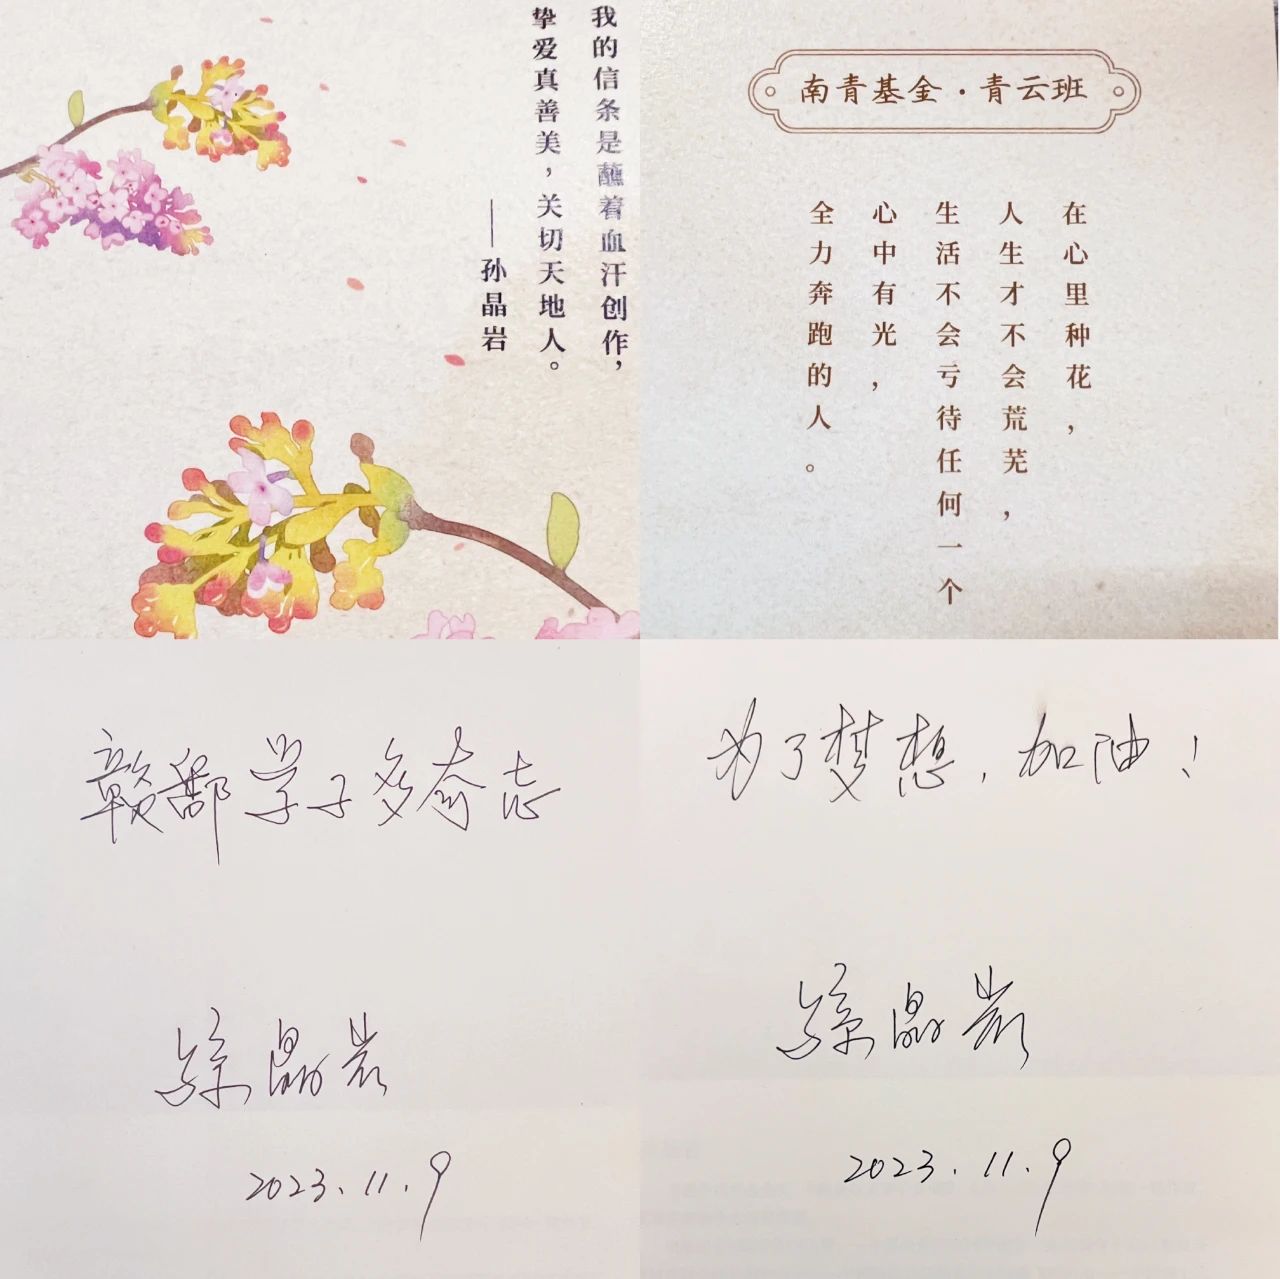 我的信条是蘸着血汗创作，
挚爱真善美，关切天地人。
——孙晶岩
南青基金·青云班
在心里种花，
人生才不会荒芜，
生活不会亏待任何一个
心中有光，
全力奔跑的人。
赣鄱学子多奇志
孙晶岩
2023.11.9
为了梦想，加油！
孙晶岩
2023.11.9